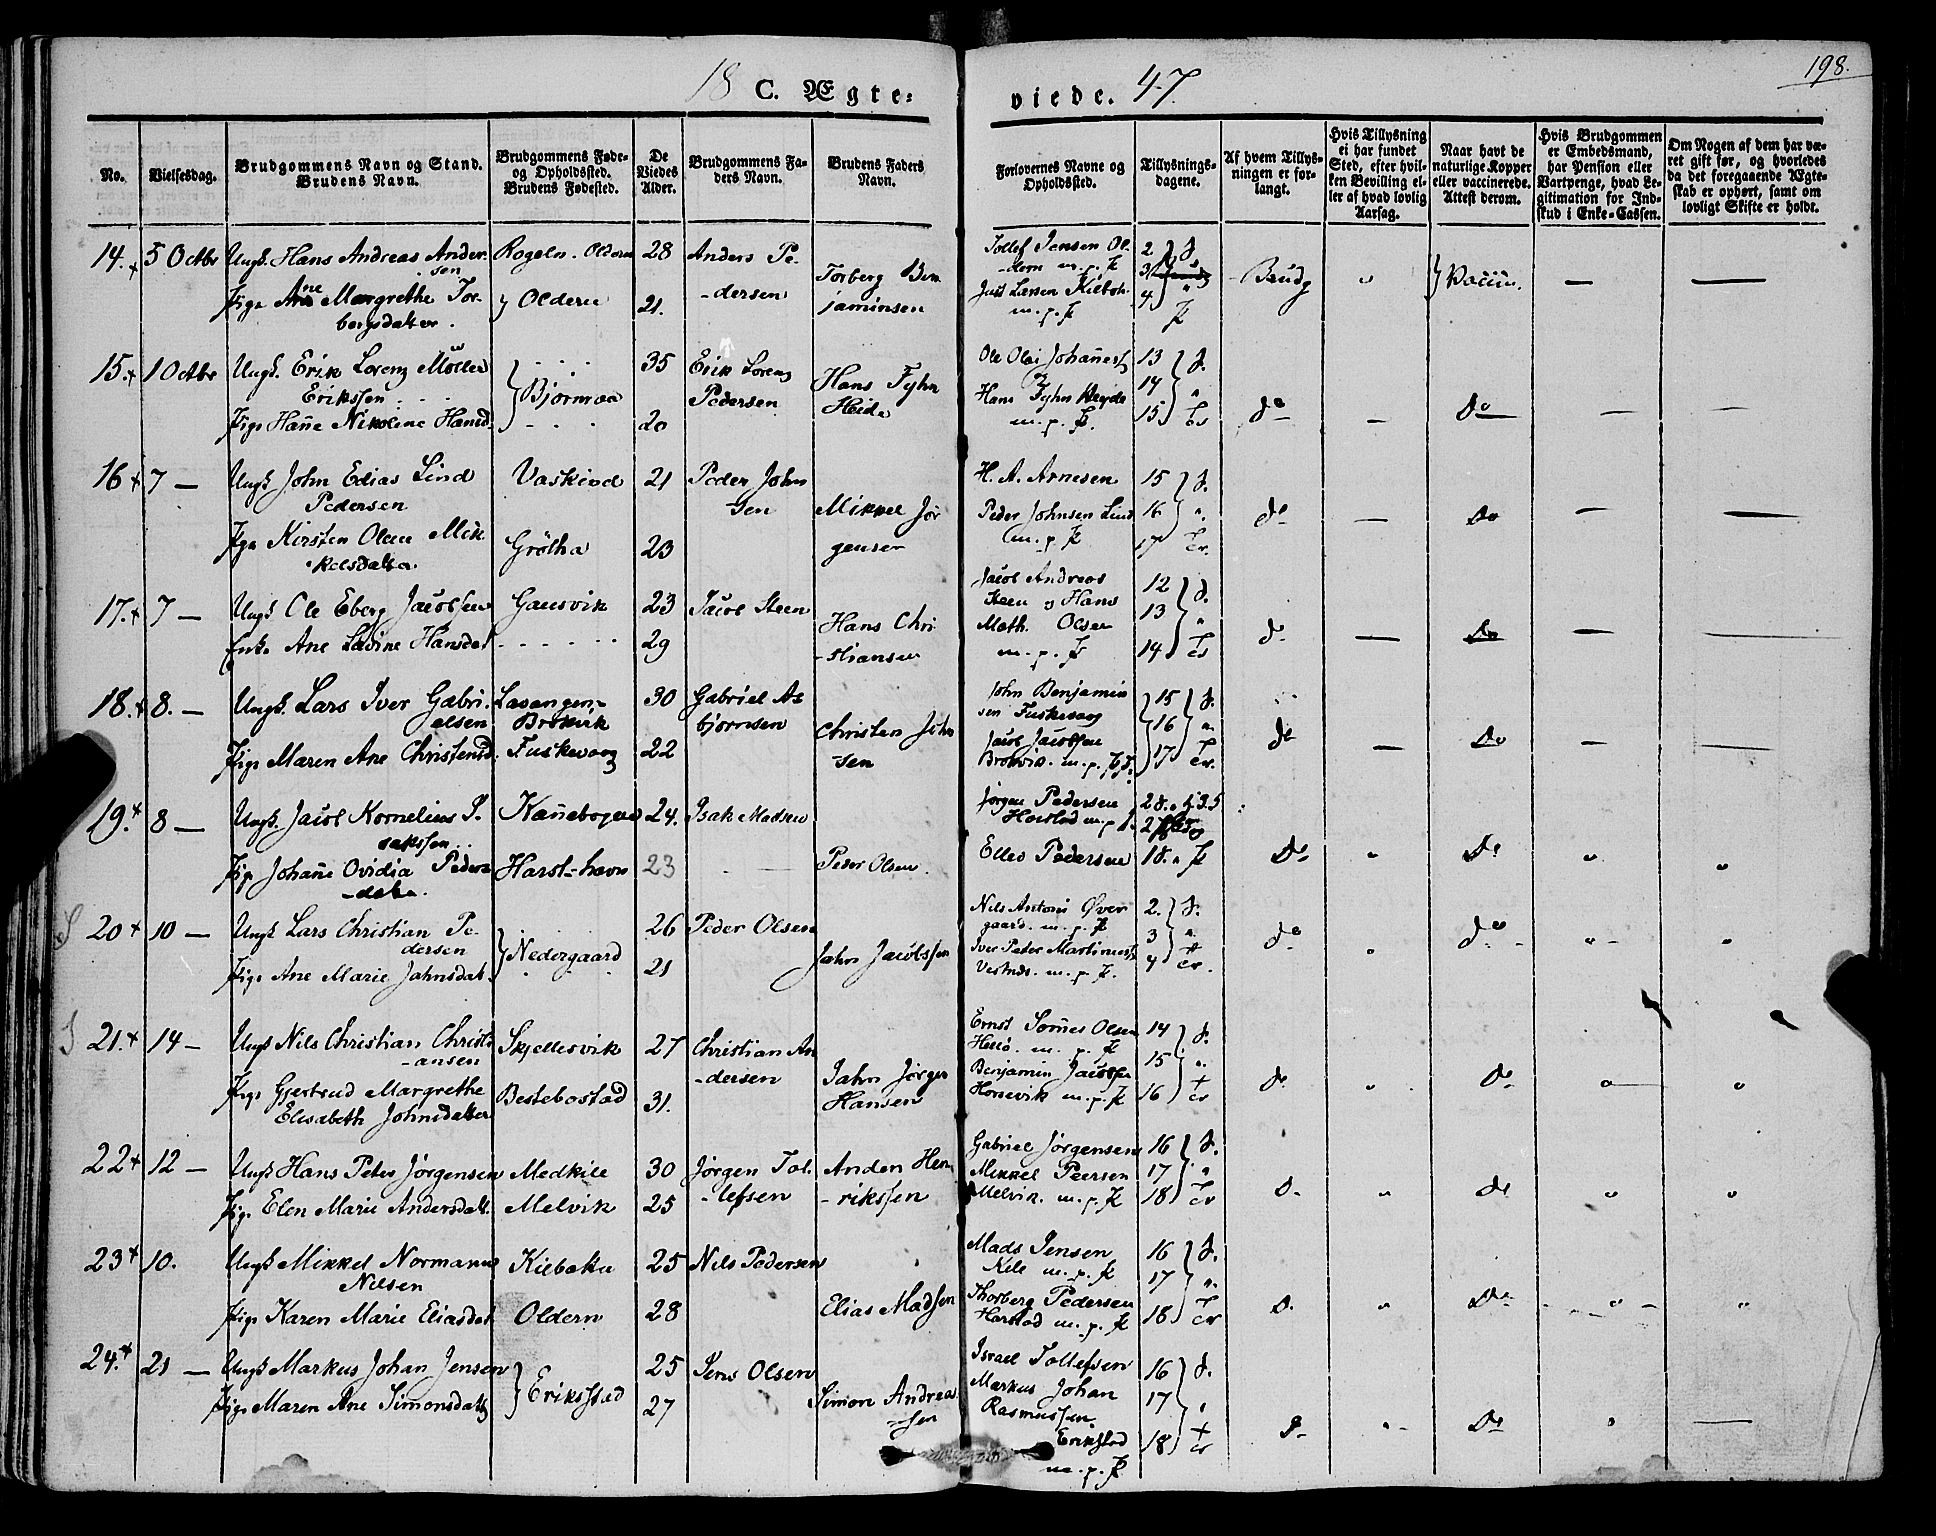 198.
18 C. Ægte: viede. 47
No.
Vielsesdag.
Brudgommens Navn og Stand.
Brudens Navn.
Brudgommens Føde-
og Opholdssted.
Brudens Fødested.
De
Viedes
Alder.
Brudgommens Fa-
ders Navn.
Brudens Faders
Navn.
Forlovernes Navne og
Opholdssted.
Tillysnings-
dagene.
Af hvem Tillys-
ningen er for-
langt.
Hvis Tillysning
ei har fundet
Sted, efter hvil-
ken Bevilling el-
ler af hvad lovlig
Aarsag.
Naar havt de
naturlige Kopper
eller vaccinerede.
Attest derom.
Hvis Brudgommen
er Embedsmand,
har Pension eller
Vartpenge, hvad Le-
gitimation for Ind-
skud i Enke-Cassen.
Om Nogen af dem har væ-
ret gift før, og hvorledes
da det foregaaende Ægte-
skab er ophørt, samt om
lovligt Skifte er holdt.
14. 5 Octbr Ungk. Hans Andreas Ander-
sen
28 Anders Pe-
-dersen
Pige Ane Margrethe Tor-
bergsdatter.
Oldern 21.
Torberg Ben
jaminsen
Tollef Jensen Ol-
-dern m. p. P
Just Larsen
m. p. P
2
3
4
Brudg
Vaccin.
15. 1 Octbr Ungk. Erik Lorenz Møller
Erikssen
Pige Hanne Nikoline Hansd.
35
20
Erik Lorenz
Pedersen
Hans Fyhn
Heide
Ole Olai Johannes
Hans Fyhn Heide
m. p. P.
13
14
15
do
Do
16 7 — Ungk John Edias Lind
Pedersen
Pige Kirsten Olea Mik
kelsdatter.
Grøtha
21
23
Peder John
sen
Mikkel Jør
gensen
H. A. Arnesen
Peder Johnsen Lind
m. p. P
15
16
17
do
Do
17. 7 — Ungk Ole Eberg Jacobsen
Enke Ane Lavine Hansdat
Gausvik
23
29
Jacob Steen
Hans Chri
-stiansen
Jacob Andreas
Steen og Hans
Math. Olsen
m. p. P
12
13
14
do
Do
18. 8. — Ungk. Lars Iver Gabri-
elsen
Pige Maren Ane Christensd.
Lavangen-
Brokvik
Fuskevaag
30
22
Gabriel As
bjørnsen
Christen John
sen
John Benjamin
sen Fuskevaag
Jacob Jacobsen
Brokvik. m. p. P.
15
16
17
do
Do
19. 8 — Ungk. Jacob Kornelius I.
sakssen
Pige Johanne Ovidia Peders
-datter.
Kannebogen
Harst-havn
24.
23
Isak Madsen
Peder Olsen.
Jørgen Pedersen
Harstad m. p.
Elles Pedersen
28.
27
18.
Do
Do
20 10 — Ungk Lars Christian Pe-
dersen
Pige Ane Marie Jahnsdat.
Nedergaard
26
21
Peder Olsen
Jahn Jacobssen
Nils Antoni Øver
gaard. m. p. P
Iver Peter Martinuss
m. p. P.
2.
3
4
do
do
21. 14 — Ungk Nils Christian Christi
-ansen
Pige Gjertrud Margrethe
Elisabeth Johnsdatter
Skjellesvik
Bestebostad
27
31.
Christian An
-dersen
Jahn Jørgen
Hansen
Ernst Olsen
m. p. P
Benjamin Jacobssen
m. p. P
14
15
16
do
Do
22 12 — Ungk Hans Peter Jørgensen
Pige. Elen Marie Andersdatt.
Medkile
Melvik
30
25
Jørgen Tol-
-lefsen
Anders Hen
-rikssen
Gabriel Jørgensen
Mikkel Peersen
Melvik. m. p. P
16
17
18
Do
23 10. Ungk Mikkel Normann
Nilsen
Pige Karen Marie Eliasdat
Oldern
25
28
Nils Pedersen
Elias Madssen
Mads Jensen
Kile m. p. P
Thorberg Pedersen
Harstad m. p. P
16
17
18
Do
24. 21 — Ungk Markus Johan Jensen
Pige Maren Ane Simonsdatt
Eriksstad
25
27
Jens Olsen
Simon Andreas
sen
Israel Tollefsen
Markus Johan
Rasmussen
Erikstad
m. p. P
16
17
18
Do